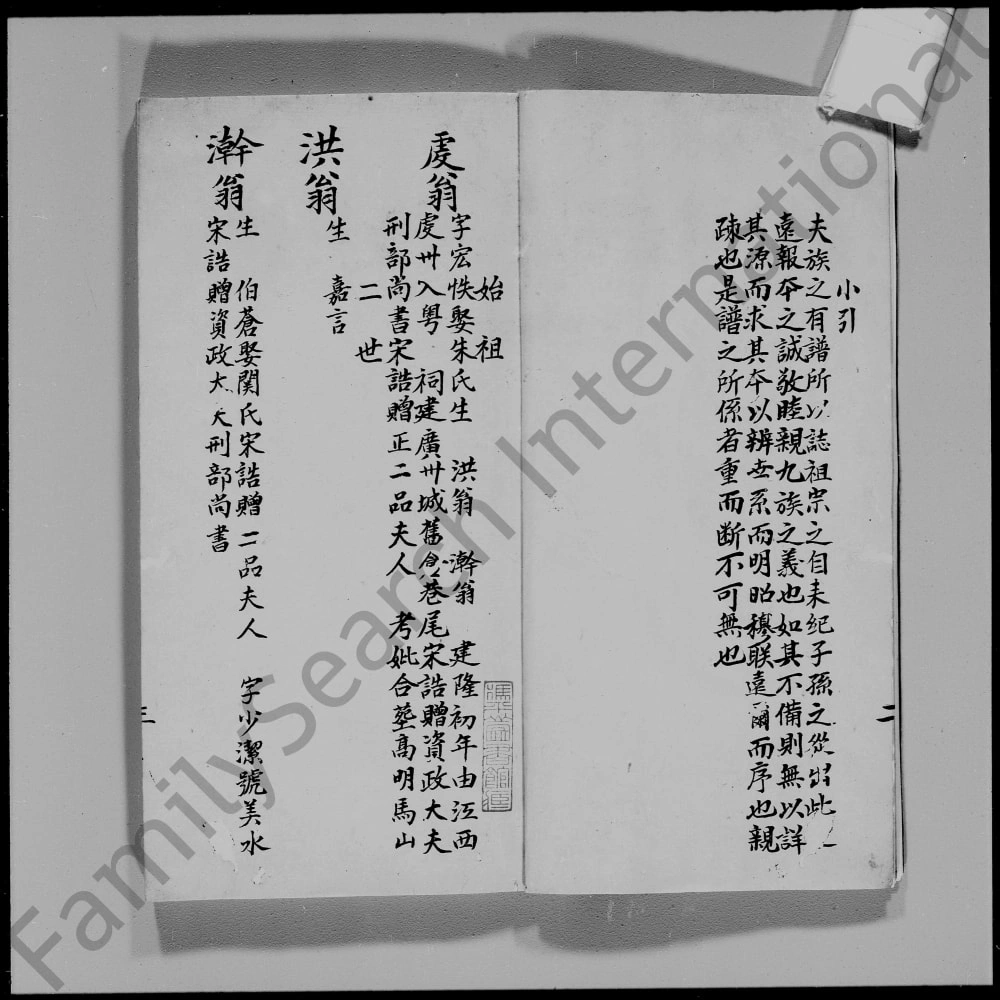 小引
夫族之有譜所以誌祖宗之自来紀子孫之從出此
遠報夲之誠敬睦親九族之義也如其不備則無以詳
其源而求其夲以辨世系而明昭穆联遠爾而序也親
疎也是譜之所係者重而断不可無也
二
始祖
虔翁
字宏怢娶朱氏生 洪翁 澣翁 建隆初年由江西
虔卅入粤 祠建廣卅城舊倉巷尾宋誥贈資政大夫
刑部尚書宋誥贈正二品夫人 考妣合塟髙明馬山
二世
洪翁
生 嘉言
澣翁
生 伯蒼娶関氏宋誥贈二品夫人 字少潔號美水
宋誥贈資政大夫刑部尚書
三
FamilySearch International